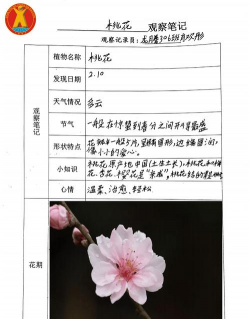 桃花 观察笔记
观察记录员：
植物名称 桃花
发现日期 2.10
天气情况 多云
观察笔记
节气 一般在惊蛰到春分之间开得最盛
形状特点 花瓣一般5片，呈椭圆形，边缘圆润，像小小的爱心。
小知识 桃花原产地中国(土生土长)，桃花和梅花、杏花、樱花是"亲戚"，桃花结的
心情 温柔、治愈、轻松
花期